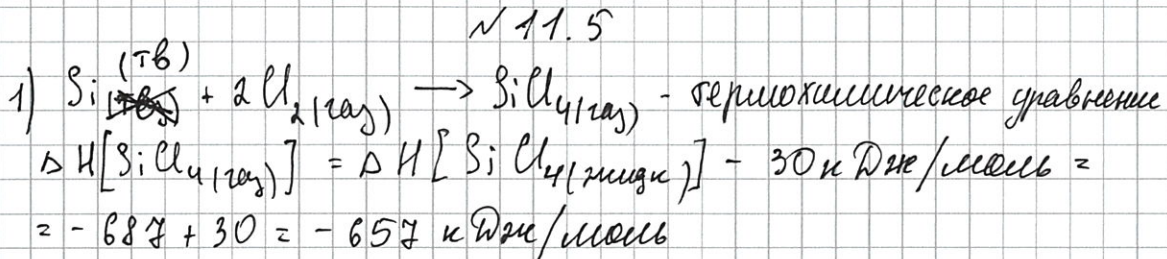 № 11.5
1) Si(тв) + 2Cl₂(газ) → SiCl₄(газ) - термохимическое уравнение
ΔH[SiCl₄(газ)] = ΔH[SiCl₄(жидк)] - 30 кДж/моль =
= - 687 + 30 = - 657 кДж/моль